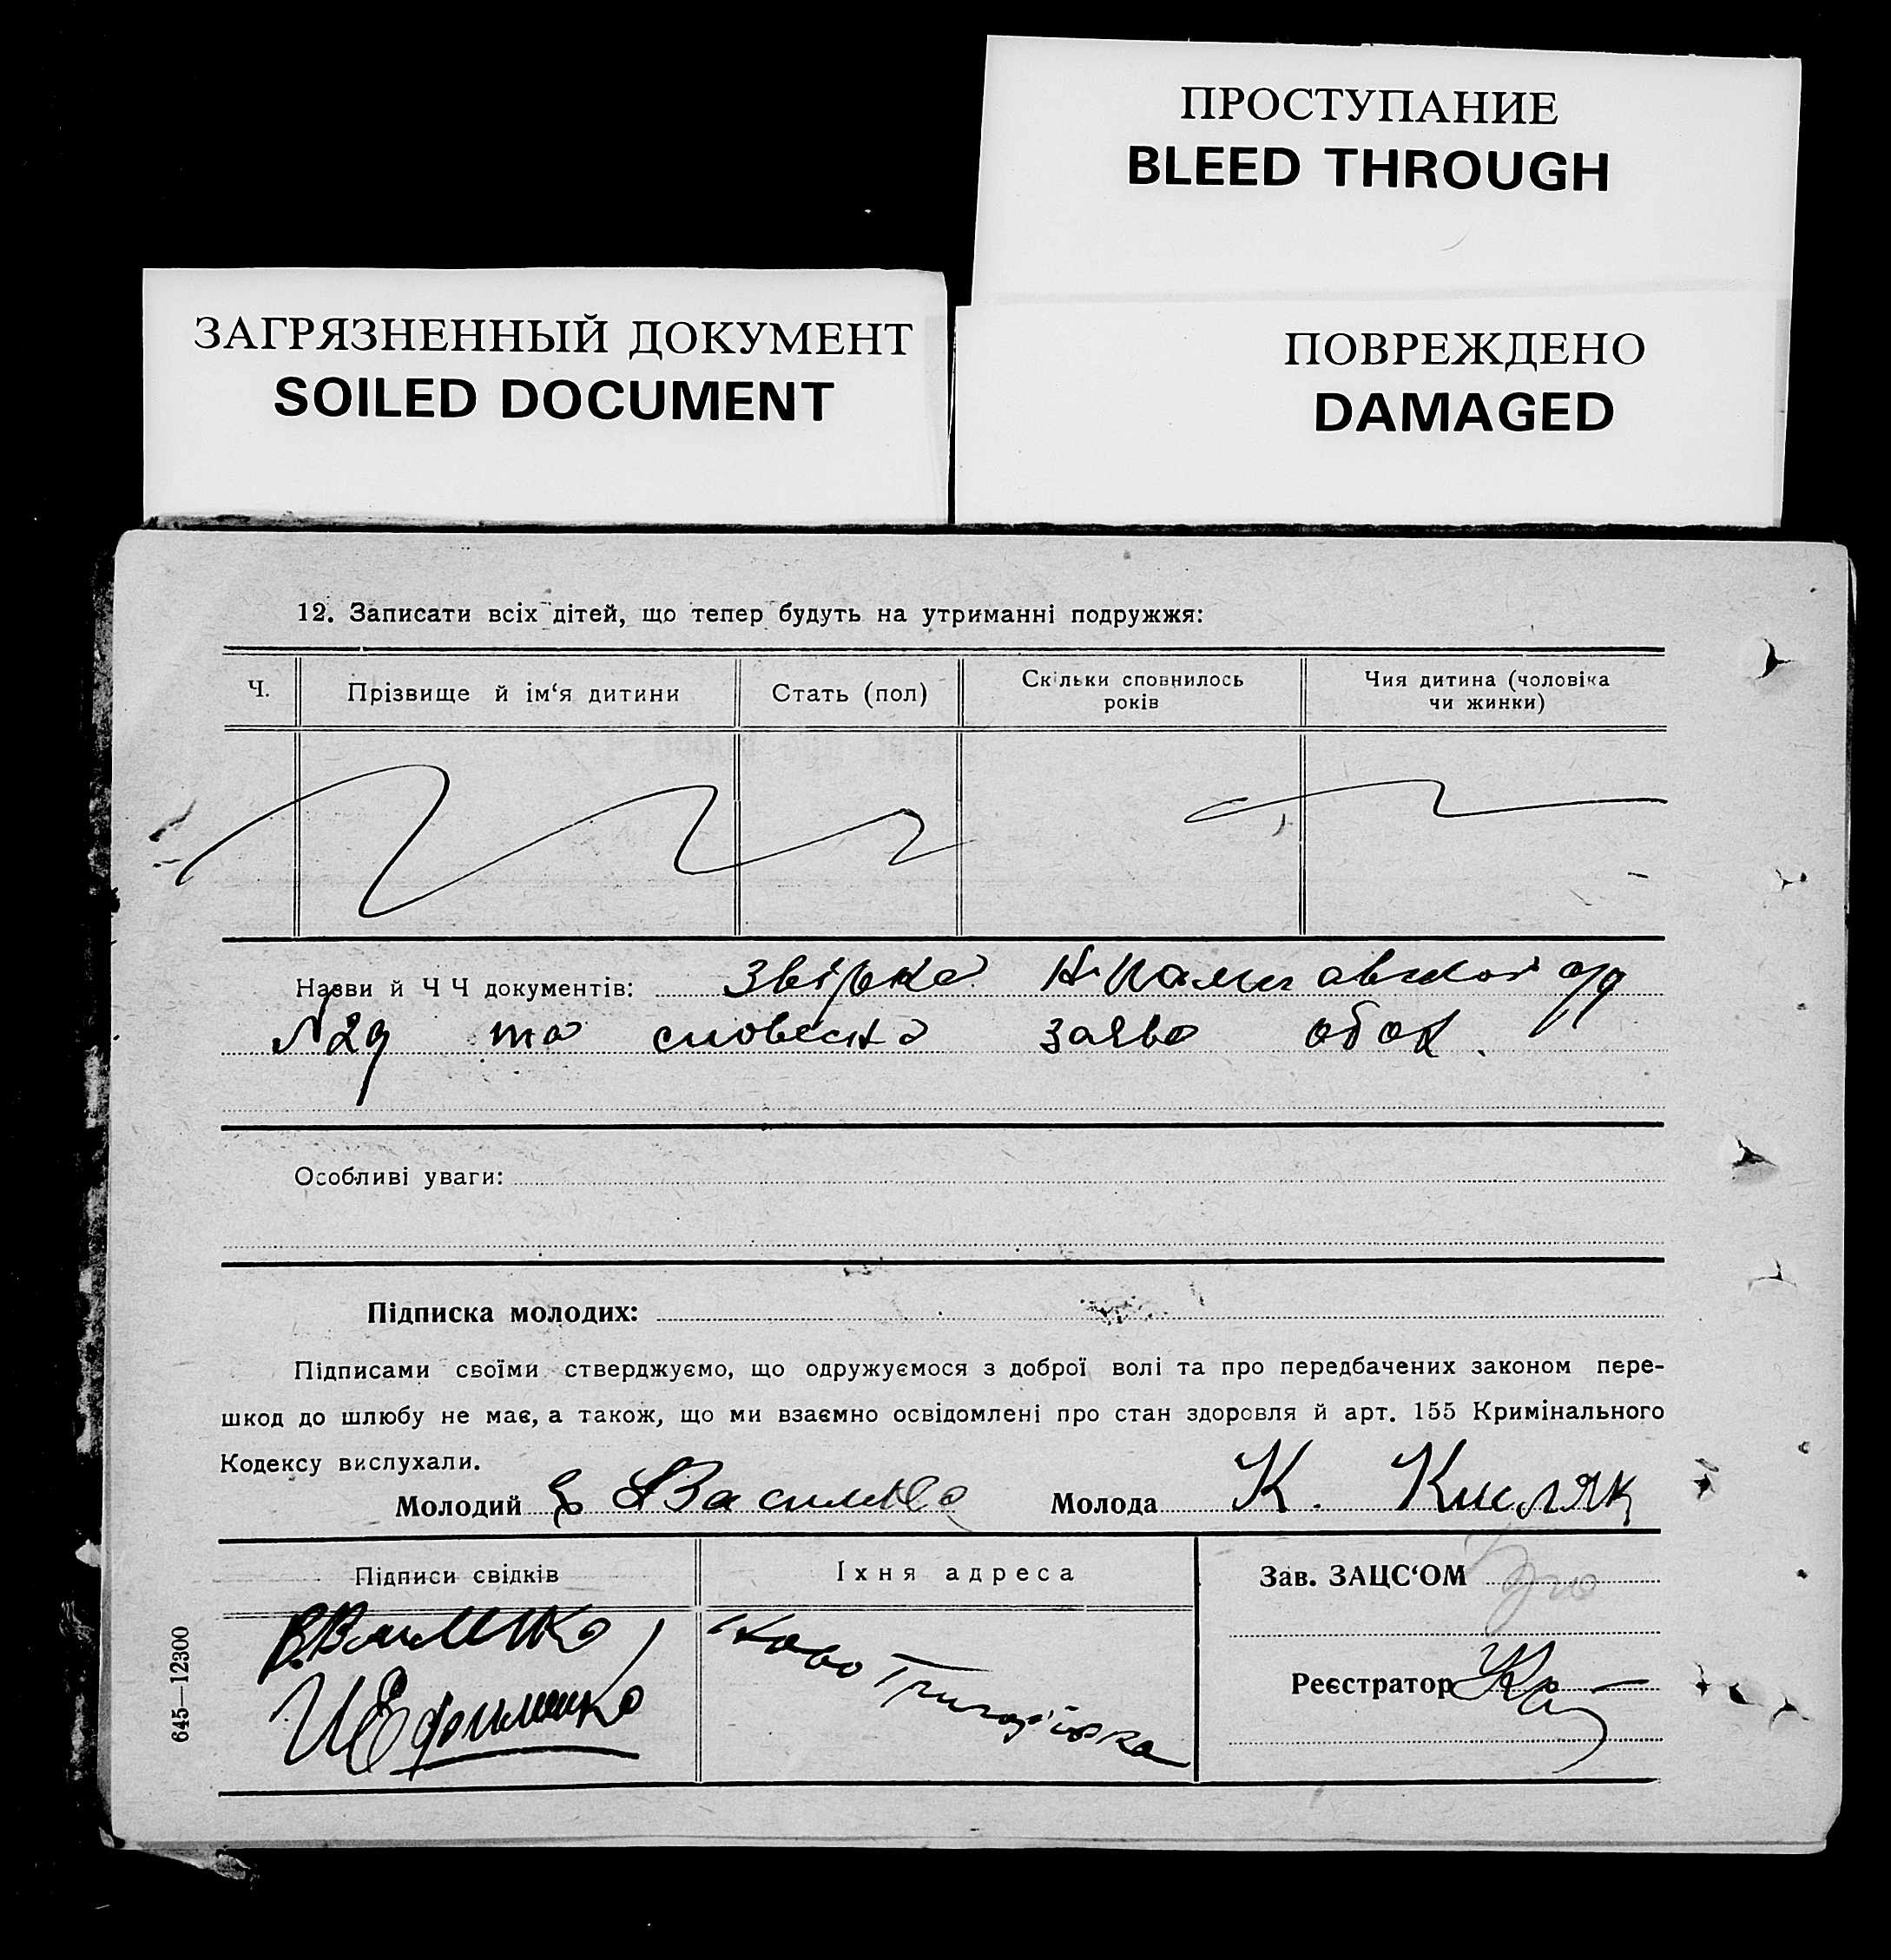 ПРОСТУПАНИЕ
BLEED THROUGH
ЗАГРЯЗНЕННЫЙ ДОКУМЕНТ
SOILED DOCUMENT
ПОВРЕЖДЕНО
DAMAGED
12. Записати всіх дітей, що тепер будуть на утриманні подружжя:
Ч. Прізвище й ім‘я дитини Стать (пол) Скільки сповнилось років Чия дитина (чоловіка чи жинки)
Назви й Ч Ч документів: звірка
N29 та словесна заява обох.
Особливі уваги:
Підписка молодих:
Підписами своїми стверджуємо, що одружуємося з доброї волі та про передбачених законом пере-
шкод до шлюбу не має, а також, що ми взаємно освідомлені про стан здоровля й арт. 155 Кримінального
Кодексу вислухали.
Молодий Молода К. Кисляк
Підписи свідків Їхня адреса Зав. ЗАЦС‘ОМ
Ново Григорівка
Реєстратор
645—12300